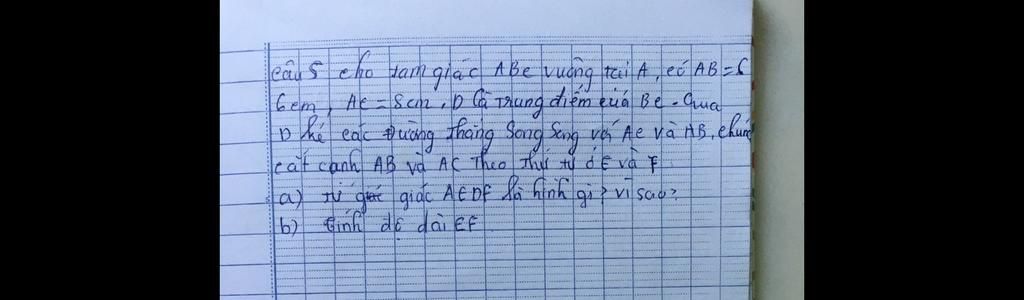 Câu 5 cho tam giác ABC vuông tại A, có AB = 6
6cm, AC = 8cm, D là trung điểm của BC. Qua
D kẻ các đường thẳng song song với AC và AB, chúng
cắt cạnh AB và AC theo thứ tự ở E và F
a) tứ giác AEDF là hình gì? vì sao?
b) tính độ dài EF